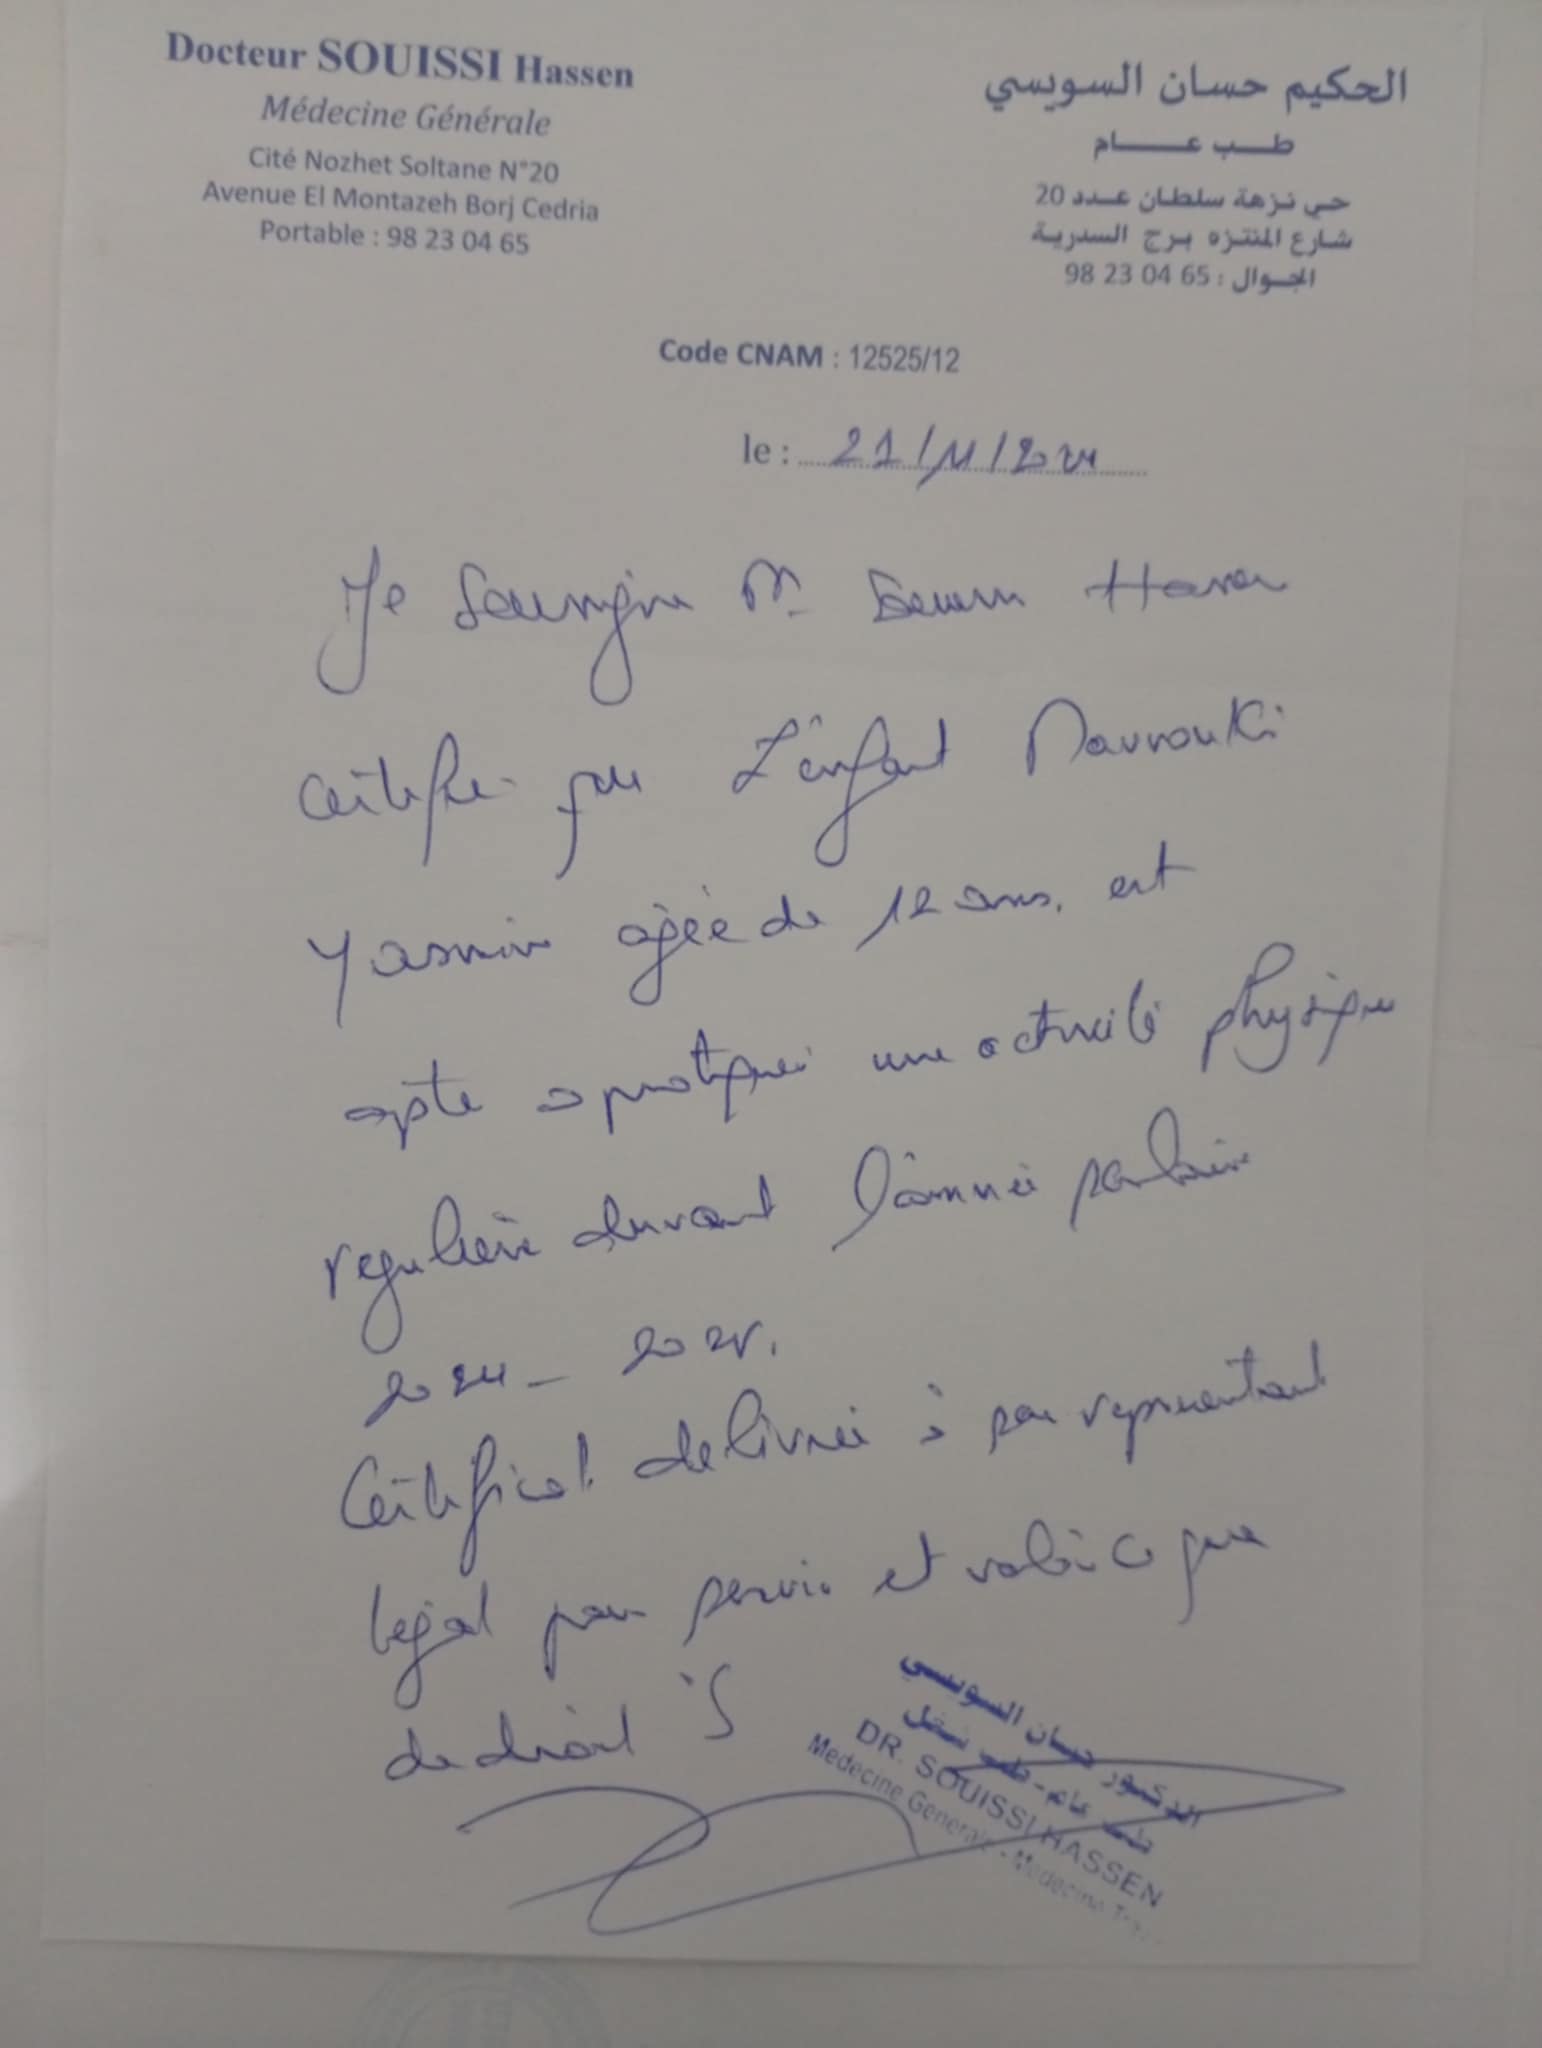 Docteur SOUISSI Hassen
Médecine Générale
Cité Nozhet Soltane N°20
Avenue El Montazeh Borj Cedria
Portable : 98 23 04 65
الحكيم حسان السويسي
طب عام
حي نزهة سلطان عدد 20
شارع المنتزه برج السدرية
الجوال : 98 23 04 65
Code CNAM : 12525/12
le : 21/11/2024
Je soussigné Dr Souissi Hassen
certifie que L'enfant Marrouki
Yasmin agée de 12 ans. est
apte à pratiquer une activité physique
regulière durant l'année
2024 - 2025.
Certificat delivrée à representant
légal pour servir et valoir ce que
de droit
الدكتور حسان السويسي
طب عام - طب شغل
DR. SOUISSI HASSEN
Medecine Generale - Medecine